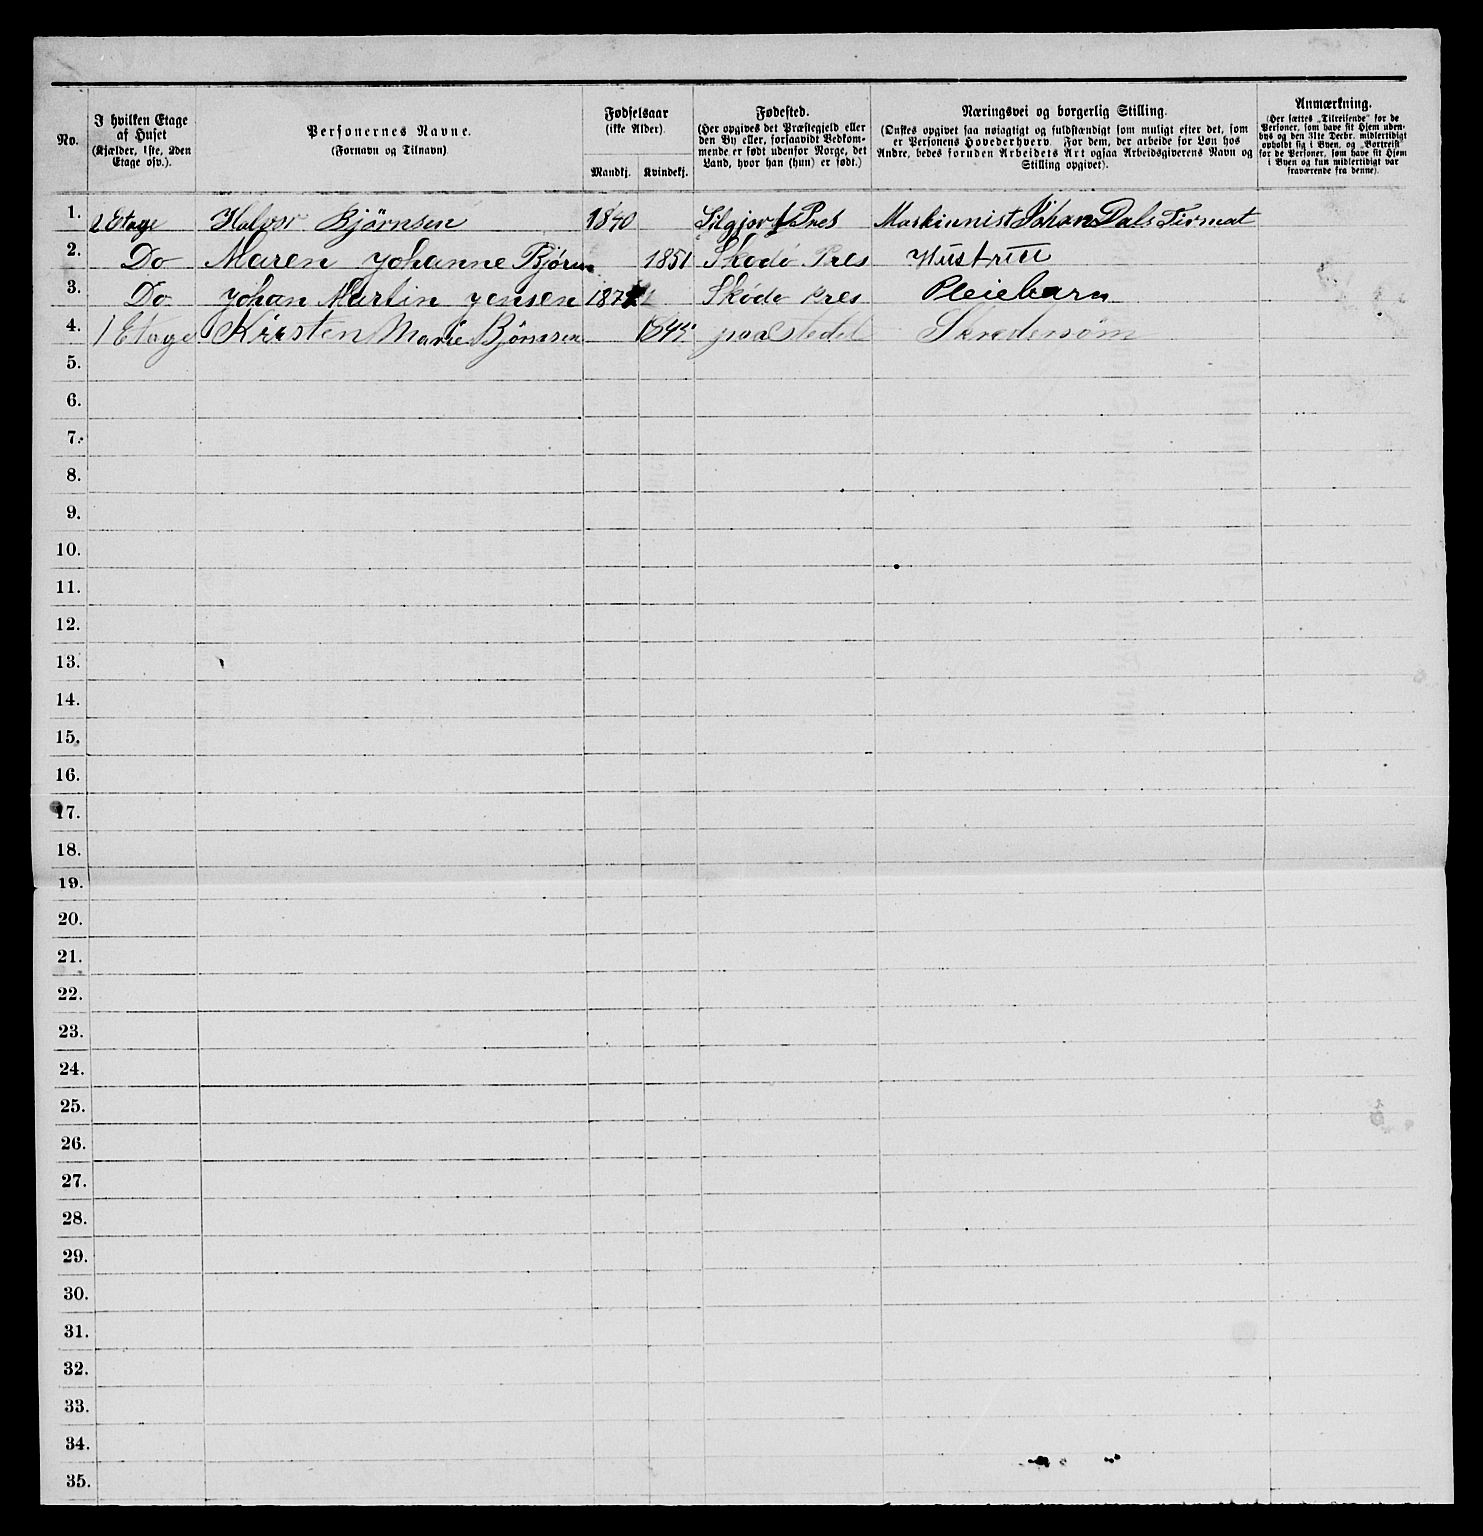 No.
I hvilken Etage
af Huset
(Kjælder, 1ste, 2den
Etage osv.).
Personernes Navne.
(Fornavn og Tilnavn)
Fødselsaar
(ikke Alder).
Mandkj.
Kvindekj.
Fødested.
(Her opgives det Præstegjeld eller
den By eller, forsaavidt Vedkom-
mende er født udenfor Norge, det
Land, hvor han (hun) er født.)
Næringsvei og borgerlig Stilling.
(Ønskes opgivet saa nøiagtigt og fuldstændigt som muligt efter det, som
er Personens Hovederhverv. For dem, der arbeide for Løn hos
Andre, bedes foruden Arbeidets Art ogsaa Arbeidsgiverens Navn og
Stilling opgivet).
Anmærkning.
(Her sættes „Tilreisende" for de
Personer, som have sit Hjem uden-
bys og den 31te Decbr. midlertidigt
opholdt sig i Byen, og „Bortreist"
for de Personer, som have sit Hjem
i Byen og kun midlertidigt var
fraværende fra denne).
1. 2 Etage Halvor Bjørnsen 1840 Pres Maskinnist Johan Dals Firmat
2. Do Maren Johanne Bjørn 1851 Skødø Pres Hustru
3. Do Johan Martin Jensen 187 Skødø Pres Pleiebarn
4. 1 Etage Kirsten Marie Bjørnsen paa stedet
5.
6.
7.
8.
9.
10.
11.
12.
13.
14.
15.
16.
17.
18.
19.
20.
21.
22.
23.
24.
25.
26.
27.
28.
29.
30.
31.
32.
33.
34.
35.